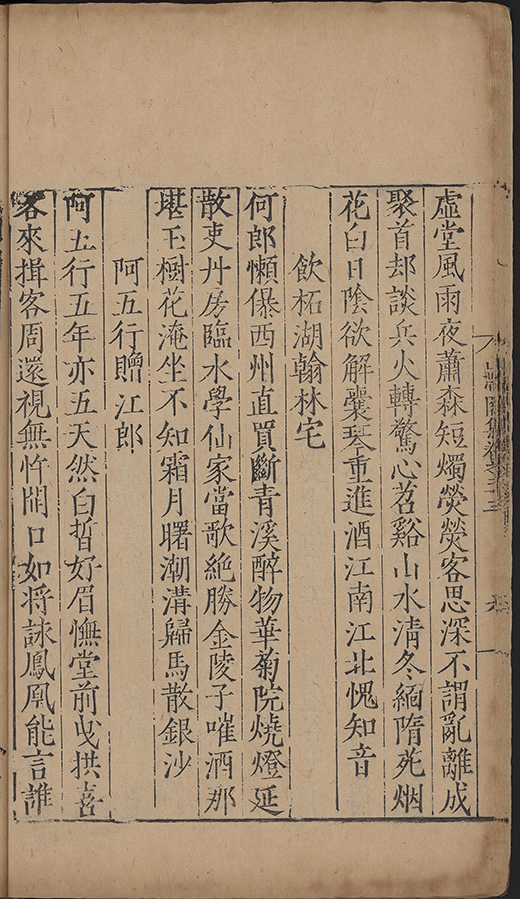 虛堂風雨夜蕭森短燭熒熒客思深不謂亂離成
聚首却談兵火轉驚心苕谿山水清冬緬隋苑烟
花白日陰欲解囊琴重進酒江南江北愧知音
飲柘湖翰林宅
何郎懶儤西州直買斷青溪醉物華菊院燒燈延
散吏丹房臨水學仙家當歌絶勝金陵子嗺酒那
堪玉樹花淹坐不知霜月曙潮溝歸馬散銀沙
阿五行贈江郎
阿五行五年亦五天然白皙好眉憮堂前曳拱喜
客來揖客周還視無忤開口如將詠鳳凰能言誰